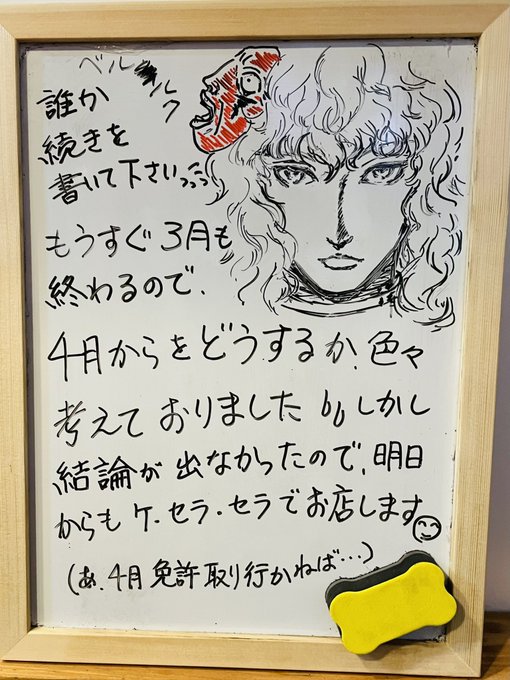 ベルセルク
誰か
続きを
書いて下さいっっ
もうすぐ3月も
終わるので、
4月からをどうするか、色々
考えておりました しかし
結論が出なかったので、明日
からもケ・セラ・セラでお店します
(あ、4月免許取り行かねば…)